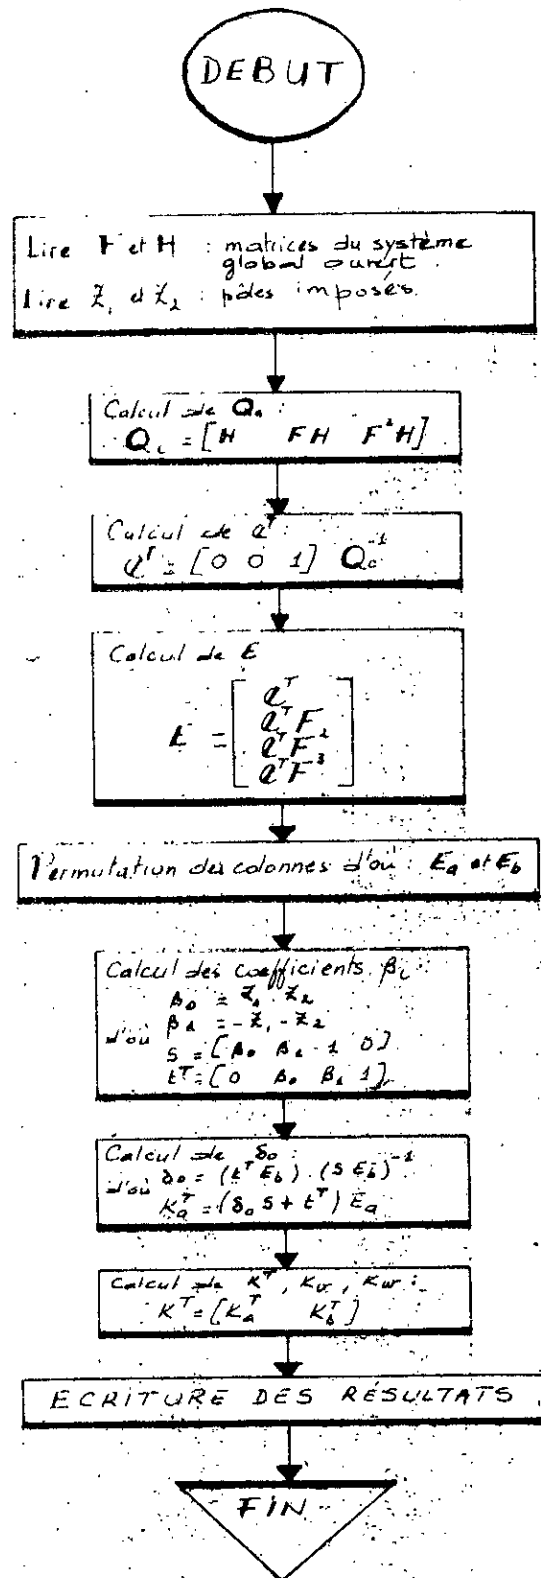 DEBUT
Lire F et H : matrices du système
global ouvert.
Lire Z₁ et Z₂ : pôles imposés.
Calcul de Qc :
Qc = [H FH F²H]
Calcul de eᵀ :
eᵀ = [0 0 1] Qc⁻¹
Calcul de E
E = [eᵀ
eᵀF
eᵀF²
eᵀF³]
Permutation des colonnes d'où : Ea et Eb
Calcul des coefficients βi :
β₀ = Z₁ . Z₂
d'où β₁ = -Z₁ - Z₂
S = [β₀ β₁ 1 0]
tᵀ = [0 β₀ β₁ 1]
Calcul de δ₀ :
d'où δ₀ = (tᵀ Eb) . (S Eb)⁻¹
Kaᵀ = (δ₀ S + tᵀ) Ea
Calcul de Kᵀ, Kv, Kw :
Kᵀ = [Kaᵀ Kbᵀ]
ECRITURE DES RÉSULTATS
FIN